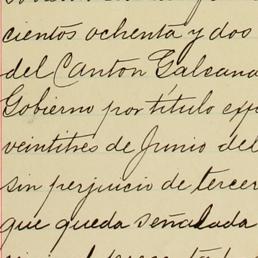 cientos ochenta y dos
del Canton Galeana
Gobierno por título exp
veintitres de Junio del
sin perjuicio de tercer
que queda señalada